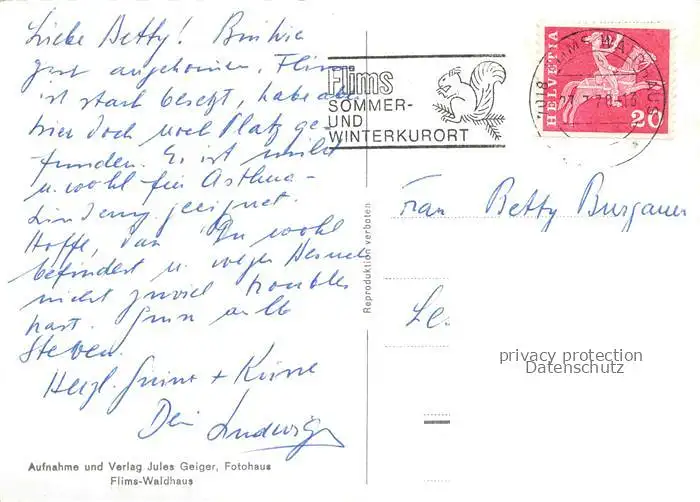 Liebe Betty! Bin hier
gut angekommen. Flims
ist stark besetzt, habe aber
hier doch noch Platz ge-
funden. Es ist mild
u. wohl für Asthma-
Linderung geeignet.
Hoffe, dass Du wohl
befindest u. wegen
nicht zuviel troubles
hast. alle
Herzl. Grüsse + Küsse
Dein Ludwig
Aufnahme und Verlag Jules Geiger, Fotohaus
Flims-Waldhaus
Reproduktion verboten
Flims
SOMMER-
UND
WINTERKURORT
HELVETIA
20
FLIMS-WALDHAUS
7018
Frau Betty Burgauer
privacy protection
Datenschutz